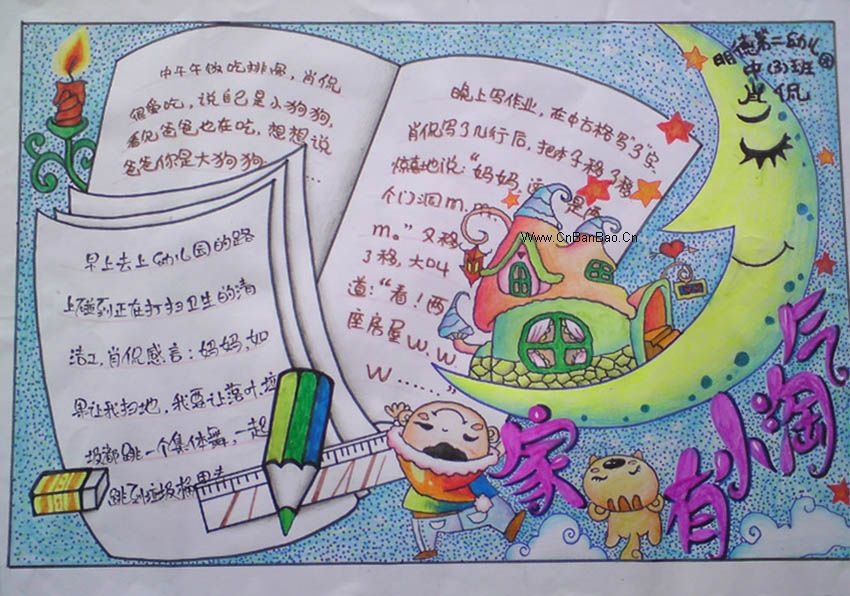 明德第二幼儿园
中(3)班
肖侃
中午午做吃排骨,肖侃
很爱吃,说自己是小狗狗,
看见爸爸也在吃,想想说
爸爸你是大狗狗
晚上写作业,在中古格写"3"字
肖侃写了几行后,把本子移了移
惊喜地说:"妈妈,这是两
个门洞m.m
m。"又移
了移,大叫
道:"看!两
座房屋W.W
W......."
www.CnBanBao.Cn
早上去上幼儿园的路
上碰到正在打扫卫生的清
洁工,肖侃感言:妈妈,如
果让我扫地,我要让落叶、垃
圾都跳一个集体舞,一起
跳到垃圾桶里去
家有小淘气